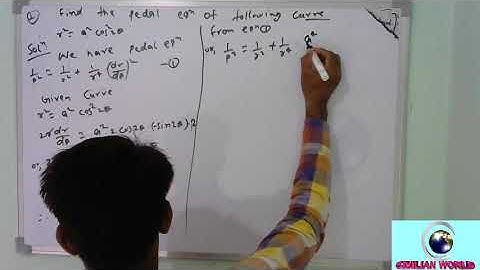 Find the pedal eqⁿ of following Curve
r² = a² cos² 2θ
Solⁿ We have pedal eqⁿ
1/p² = 1/r² + 1/r⁴ (dr/dθ)² — ①
Given Curve
r² = a² cos² 2θ
2r dr/dθ = a² 2 cos2θ (-sin2θ).2
or,
=
from eqⁿ ①
or, 1/p² = 1/r² + 1/r⁴
CIVILIAN WORLD